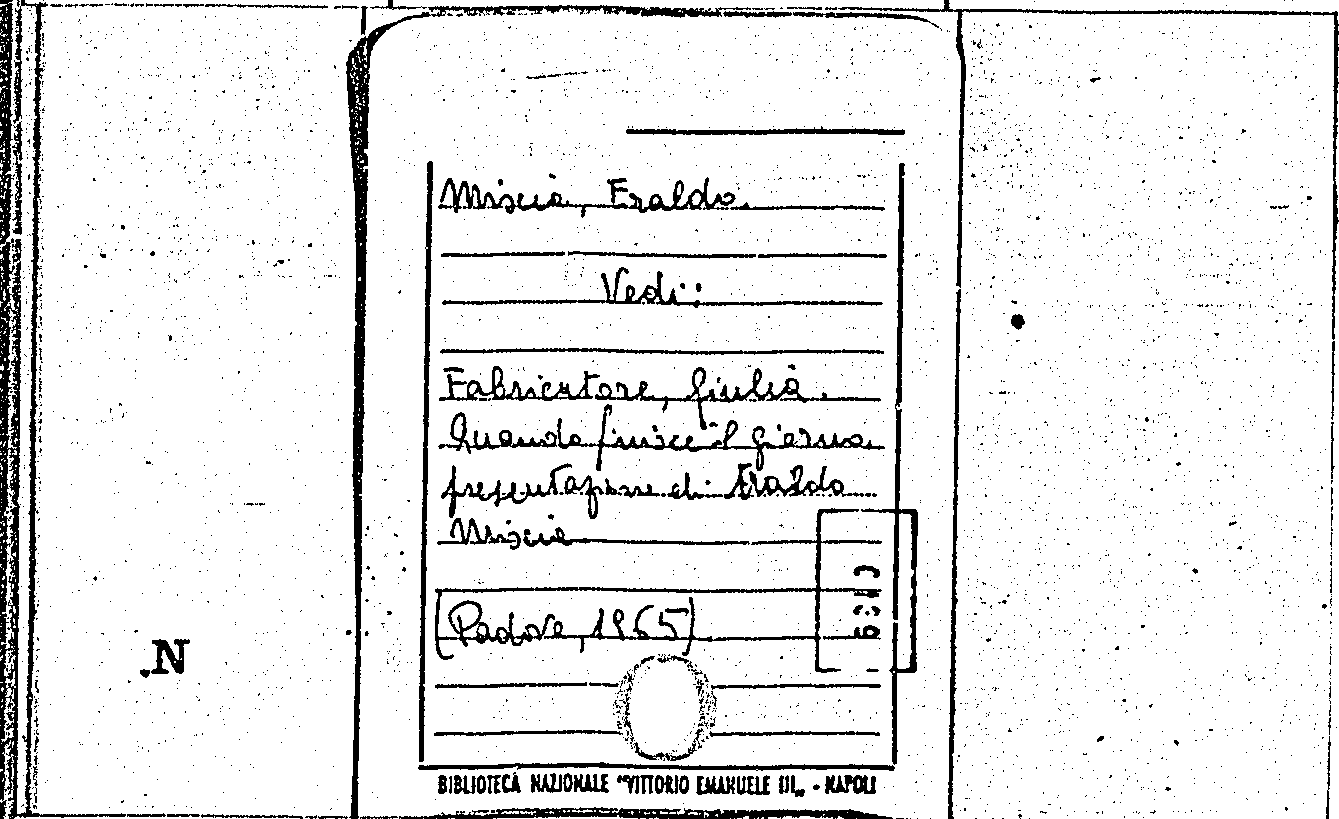 Miscia, Eraldo.
Vedi:
Fabricatore, Giulia.
Quando finisce il giorno.
presentazione di Eraldo
Miscia
(Padova, 1965)
.N
BIBLIOTECA NAZIONALE "VITTORIO EMANUELE III„ - NAPOLI